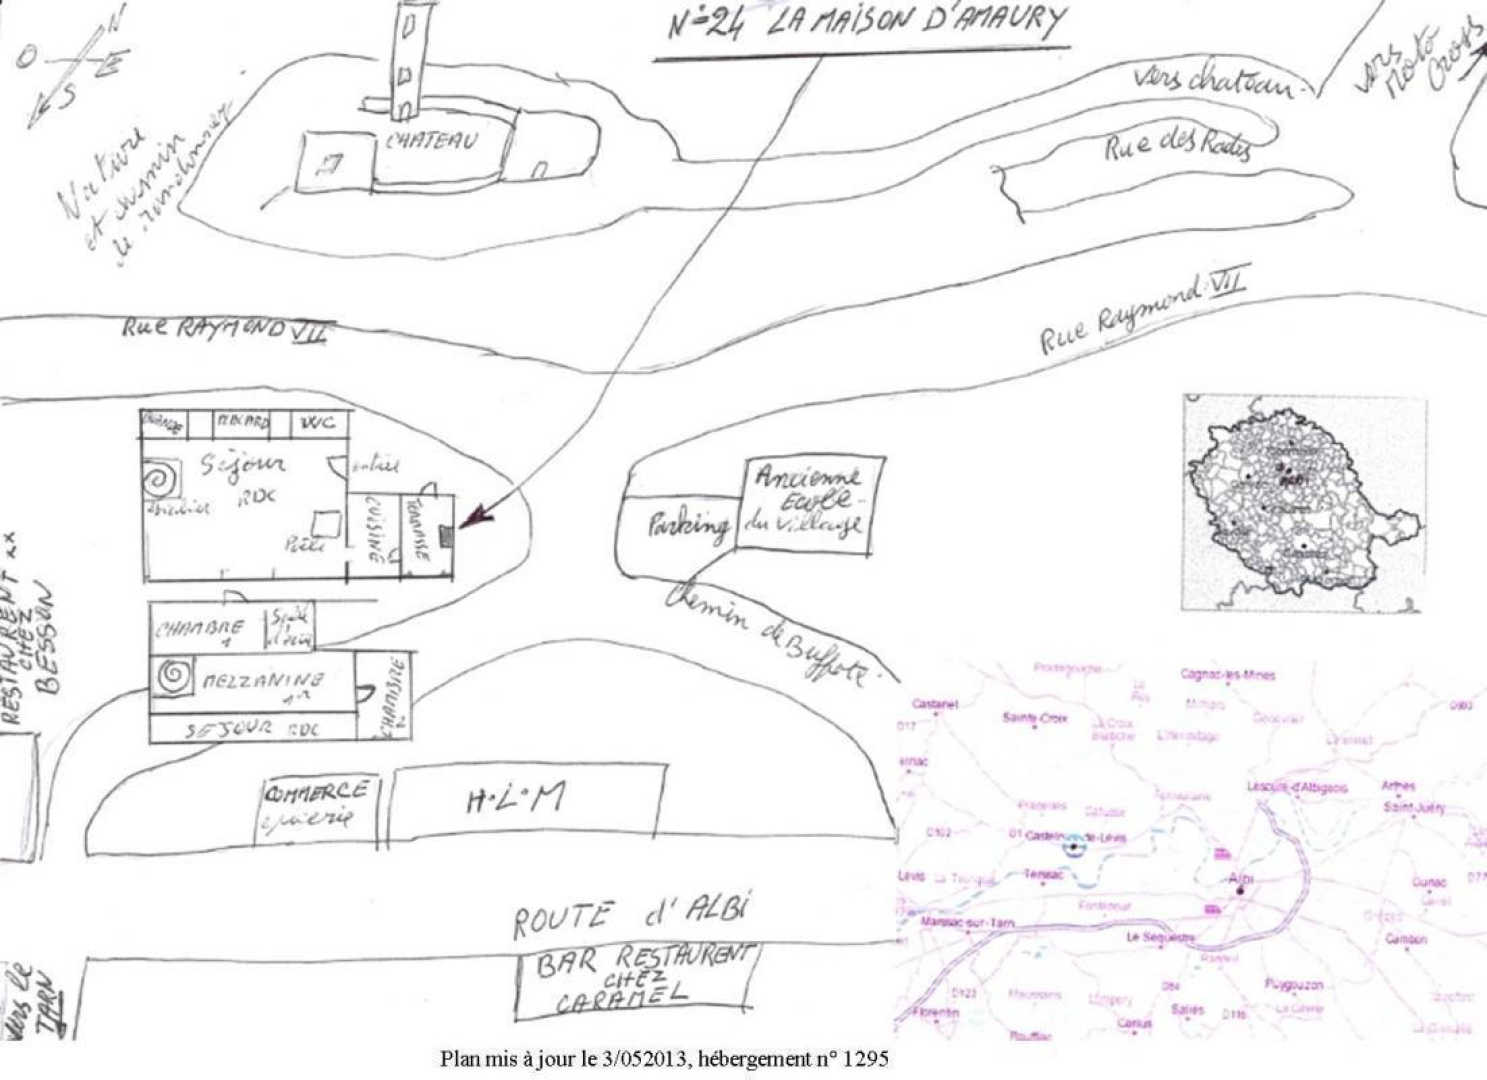 N°24 LA MAISON D'AMAURY
N
O
E
S
vers chateau
vers
Moto
Cross
CHATEAU
Rue des Rades
Nature
et chemin
de randonnée
Rue RAYMOND VII
Rue Raymond VII
PLACARD
WC
Séjour
RDC
entrée
escalier
Poêle
CUISINE
TERRASSE
Ancienne
Ecole
du village
Parking
Chemin de Buffote
RESTAURENT **
CHEZ
BESSON
CHAMBRE
1
Salle
d'eau
MEZZANINE
CHAMBRE
2
SEJOUR RDC
COMMERCE
épicerie
H.L.M
ROUTE d'ALBI
BAR RESTAURENT
CHEZ
CARAMEL
vers le
TARN
Cagnac-les-Mines
Castanet
Sainte-Croix
D17
Lescure-d'Albigeois
Arthès
Saint-Juéry
D1 Castelnau-de-Lévis
Terssac
Albi
Marssac-sur-Tarn
Le Sequestre
Cunac
Cambon
Puygouzon
Florentin
Carlus
Saliès
Rouffiac
Plan mis à jour le 3/052013, hébergement n° 1295